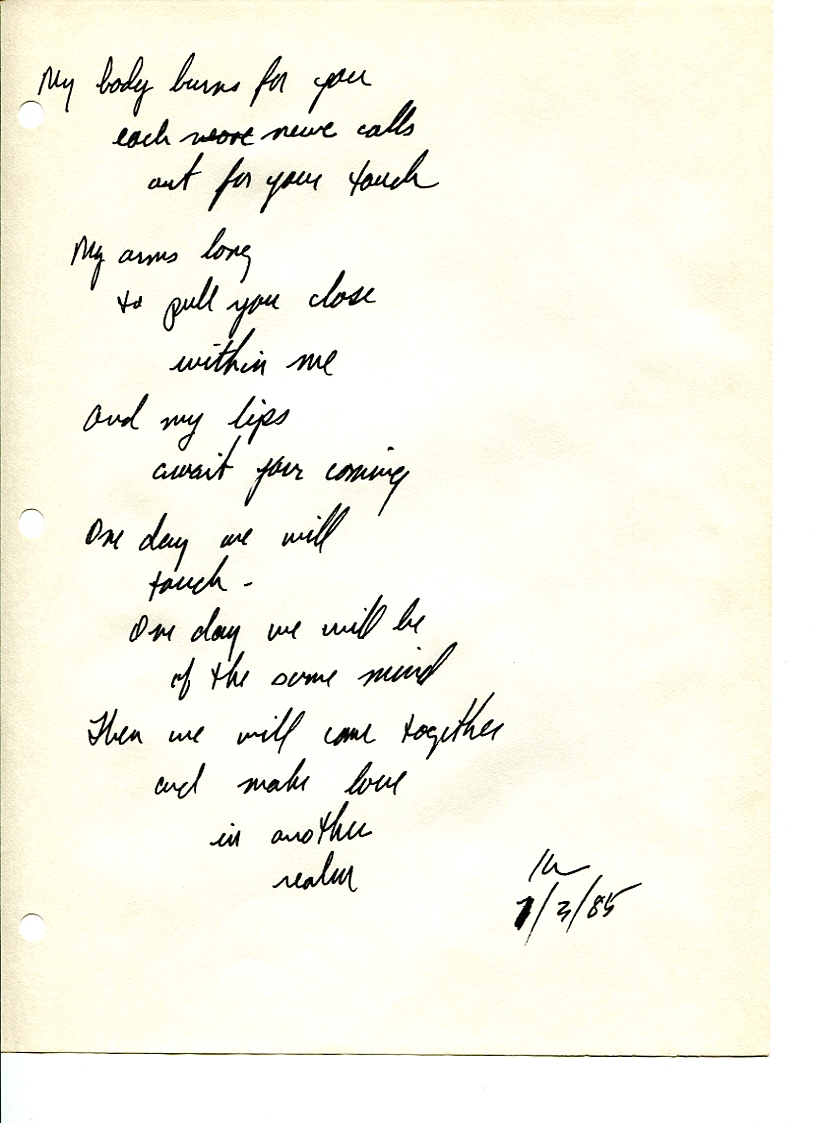 My body burns for you
each nerve calls
out for your touch
My arms long
to pull you close
within me
and my lips
await your coming
One day we will
touch -
One day we will be
of the same mind
Then we will come together
and make love
in another
realm
/3/85